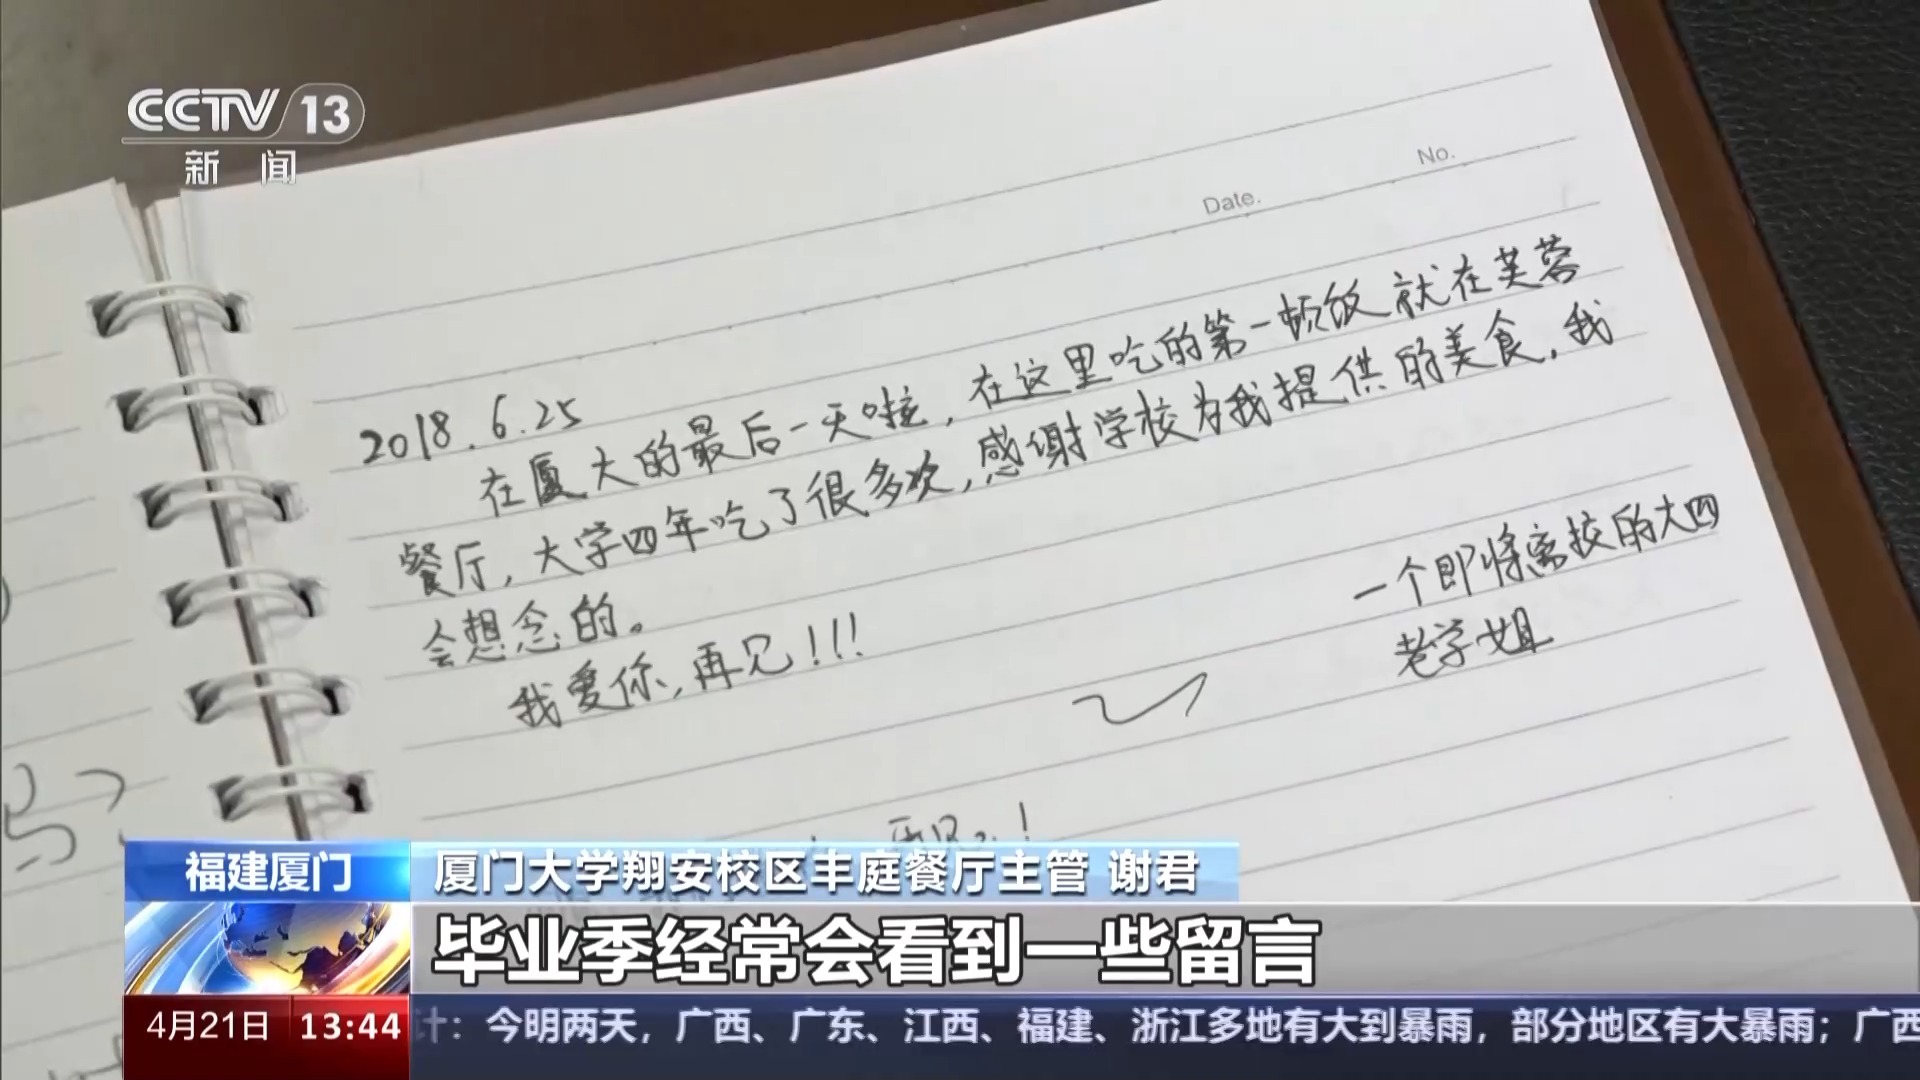 CCTV 13
新闻
No.
Date.
2018.6.25
在厦大的最后一天啦,在这里吃的第一顿饭就在芙蓉
餐厅,大学四年吃了很多次,感谢学校为我提供的美食,我
会想念的。
我爱你,再见!!!
一个即将离校的大四
老学姐
福建厦门
厦门大学翔安校区丰庭餐厅主管 谢君
毕业季经常会看到一些留言
4月21日 13:44
计:今明两天,广西、广东、江西、福建、浙江多地有大到暴雨,部分地区有大暴雨;广西